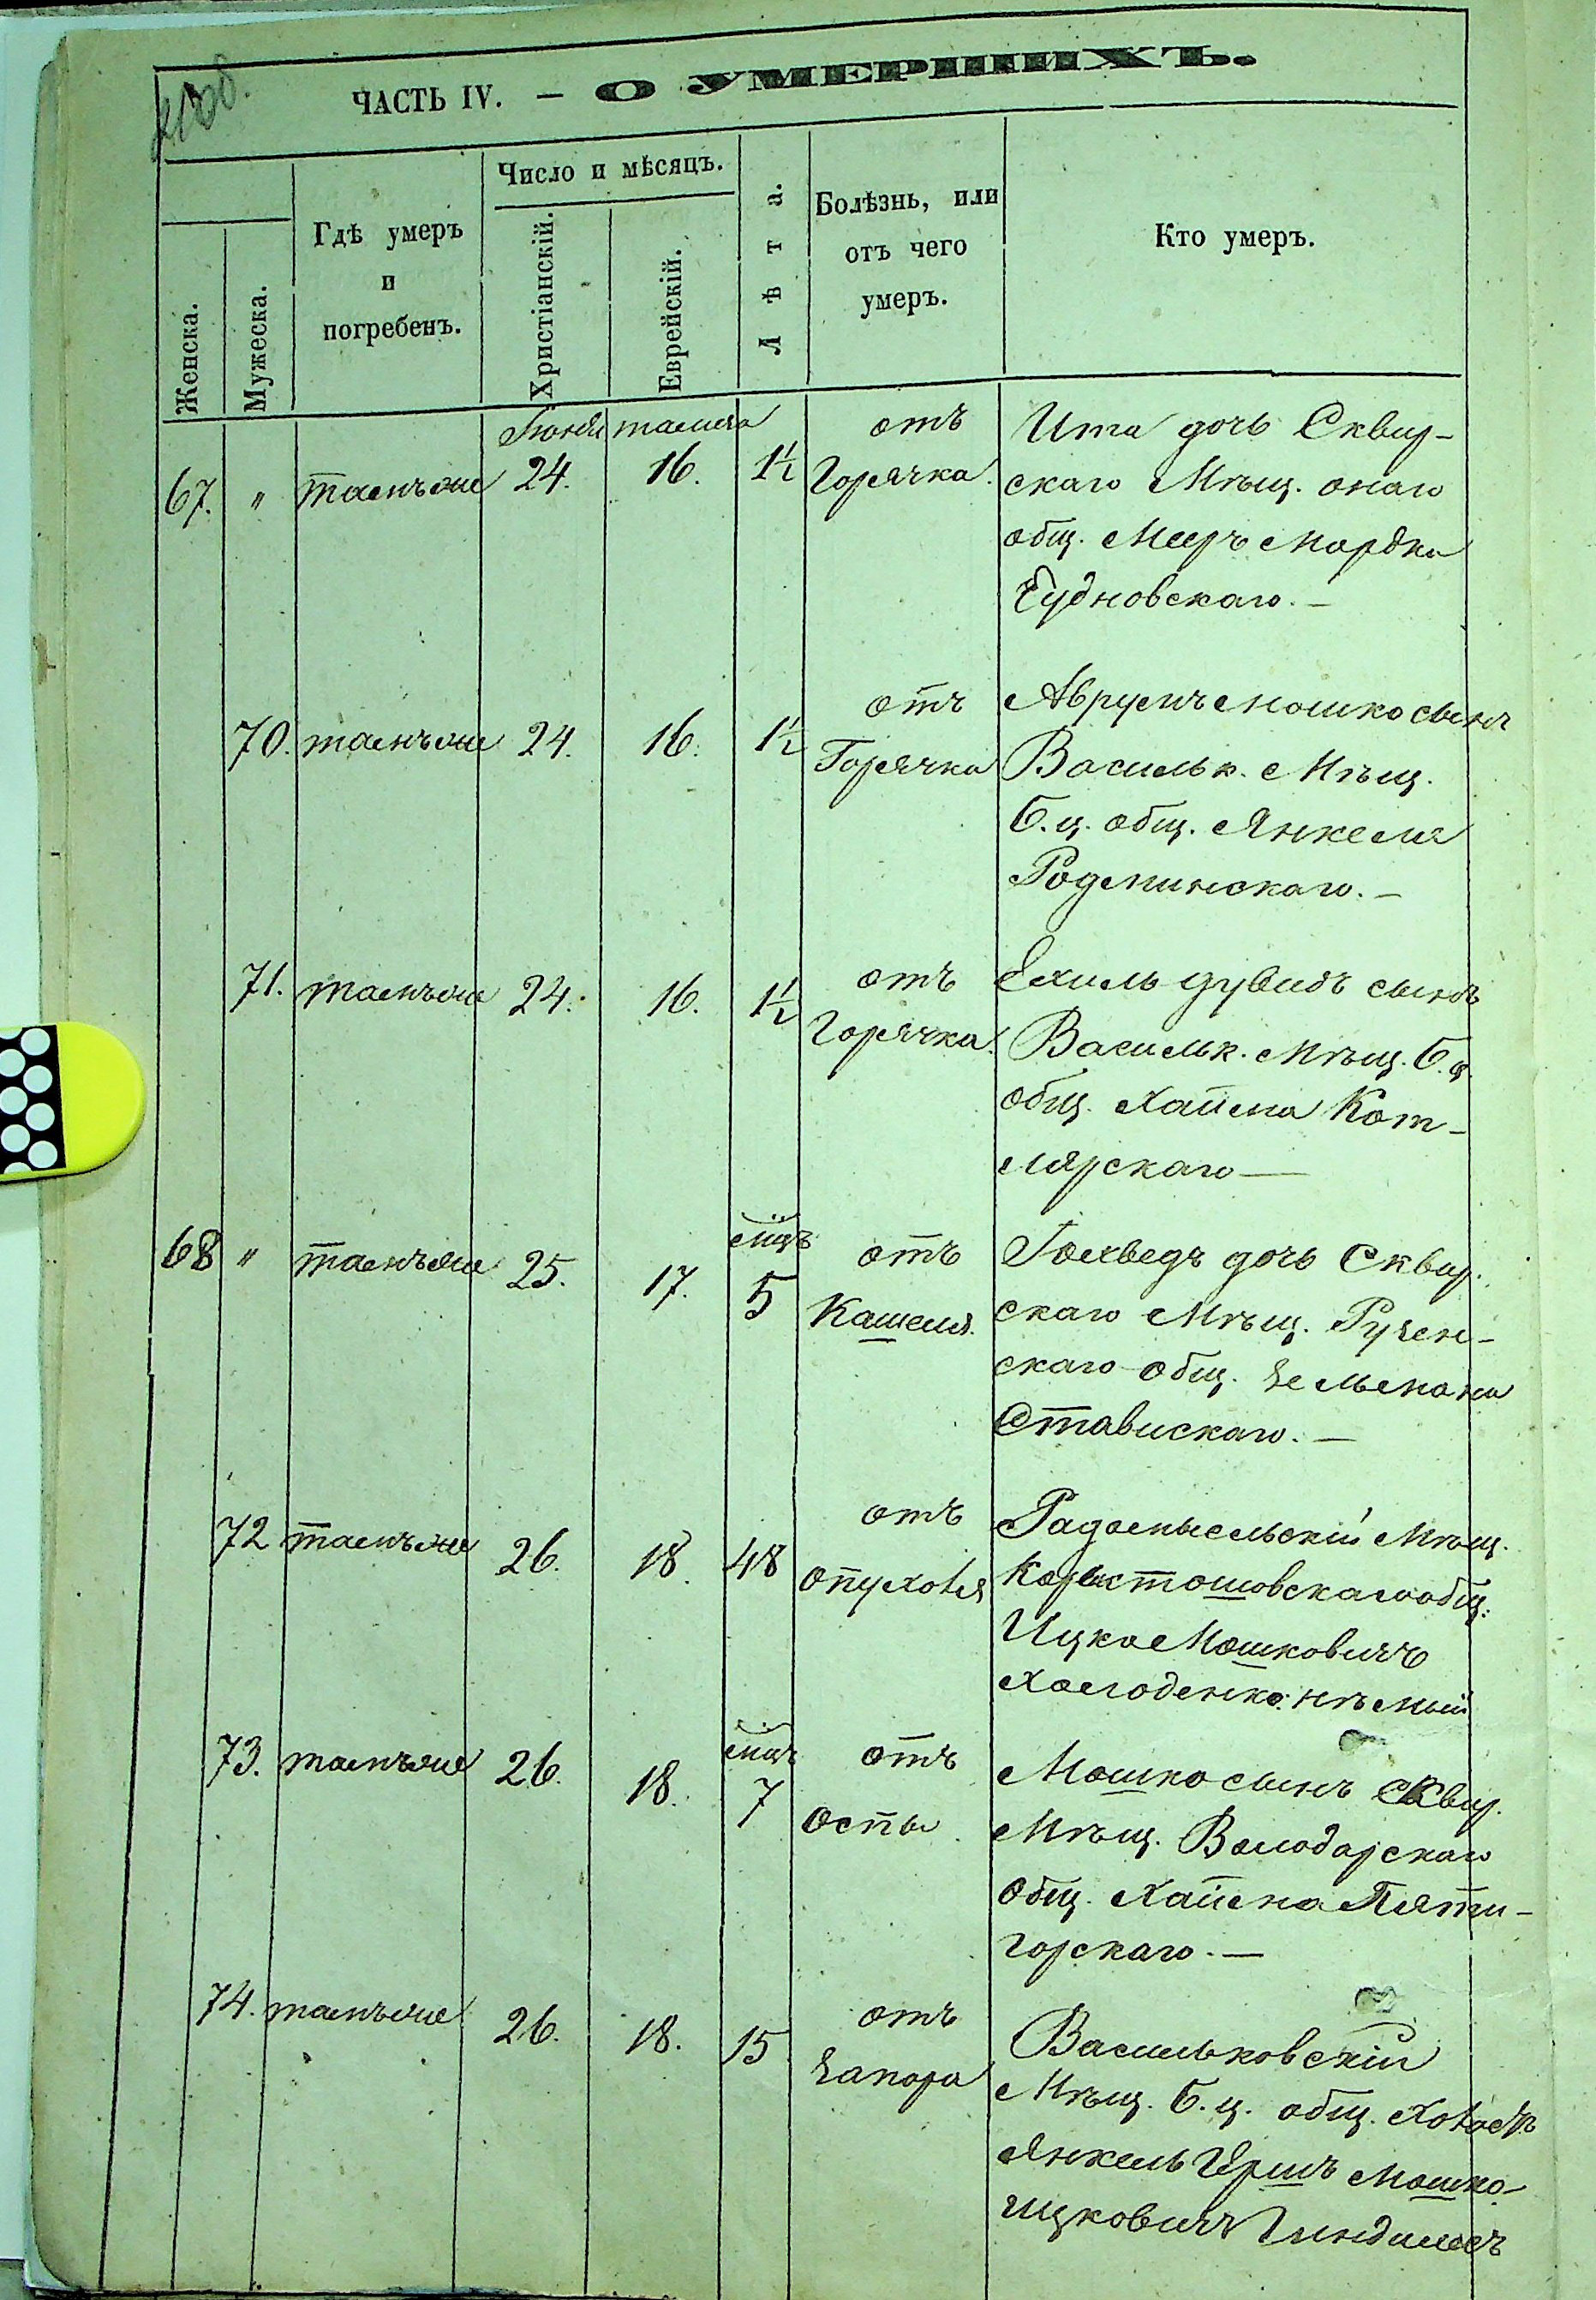 ЧАСТЬ IV. — О УМЕРШИХЪ.
Женска.
Мужеска.
Гдѣ умеръ
и
погребенъ.
Число и мѣсяцъ.
Христіанскій.
Еврейскій.
Лѣта.
Болѣзнь, или
отъ чего
умеръ.
Кто умеръ.
Іюня тамуза
67. " тамъже 24. 16. 1½ отъ
Горячка.
Ита дочь Сквир-
скаго Мѣщ. онаго
общ. Мееръ Мордка
Чудновскаго. —
70. тамъже 24. 16. 1½ отъ
Горячка
Аврумъ Мошко сынъ
Васильк. Мѣщ.
Б.ц. общ. Янкеля
71. тамъже 24. 16. 1½ отъ
Горячка.
Ехиль Дувидъ сынъ
Васильк. Мѣщ. Б.ц.
общ. Хаима Кот-
лярскаго —
68 " тамъже 25. 17. мцъ
5
отъ
Кашеля.
Іохведъ дочь Сквир.
скаго Мѣщ. Ружен-
скаго общ. Зельмана
Ставискаго. —
72 тамъже 26. 18. 48 отъ
опухотя
Радомысльскій Мѣщ.
Коростошовскаго общ.
Ицко Мошковичъ
Холоденко. нѣмый
73. тамъже 26. 18. мцъ
7
отъ
Оспы
Мошко сынъ Сквир.
Мѣщ. Володарскаго
общ. Хаима Пяти-
горскаго. —
74. тамъже 26. 18. 15 отъ
Запора
Васильковскій
Мѣщ. Б.ц. общ.
Янкель Гершъ Мошко-
Ицковичъ